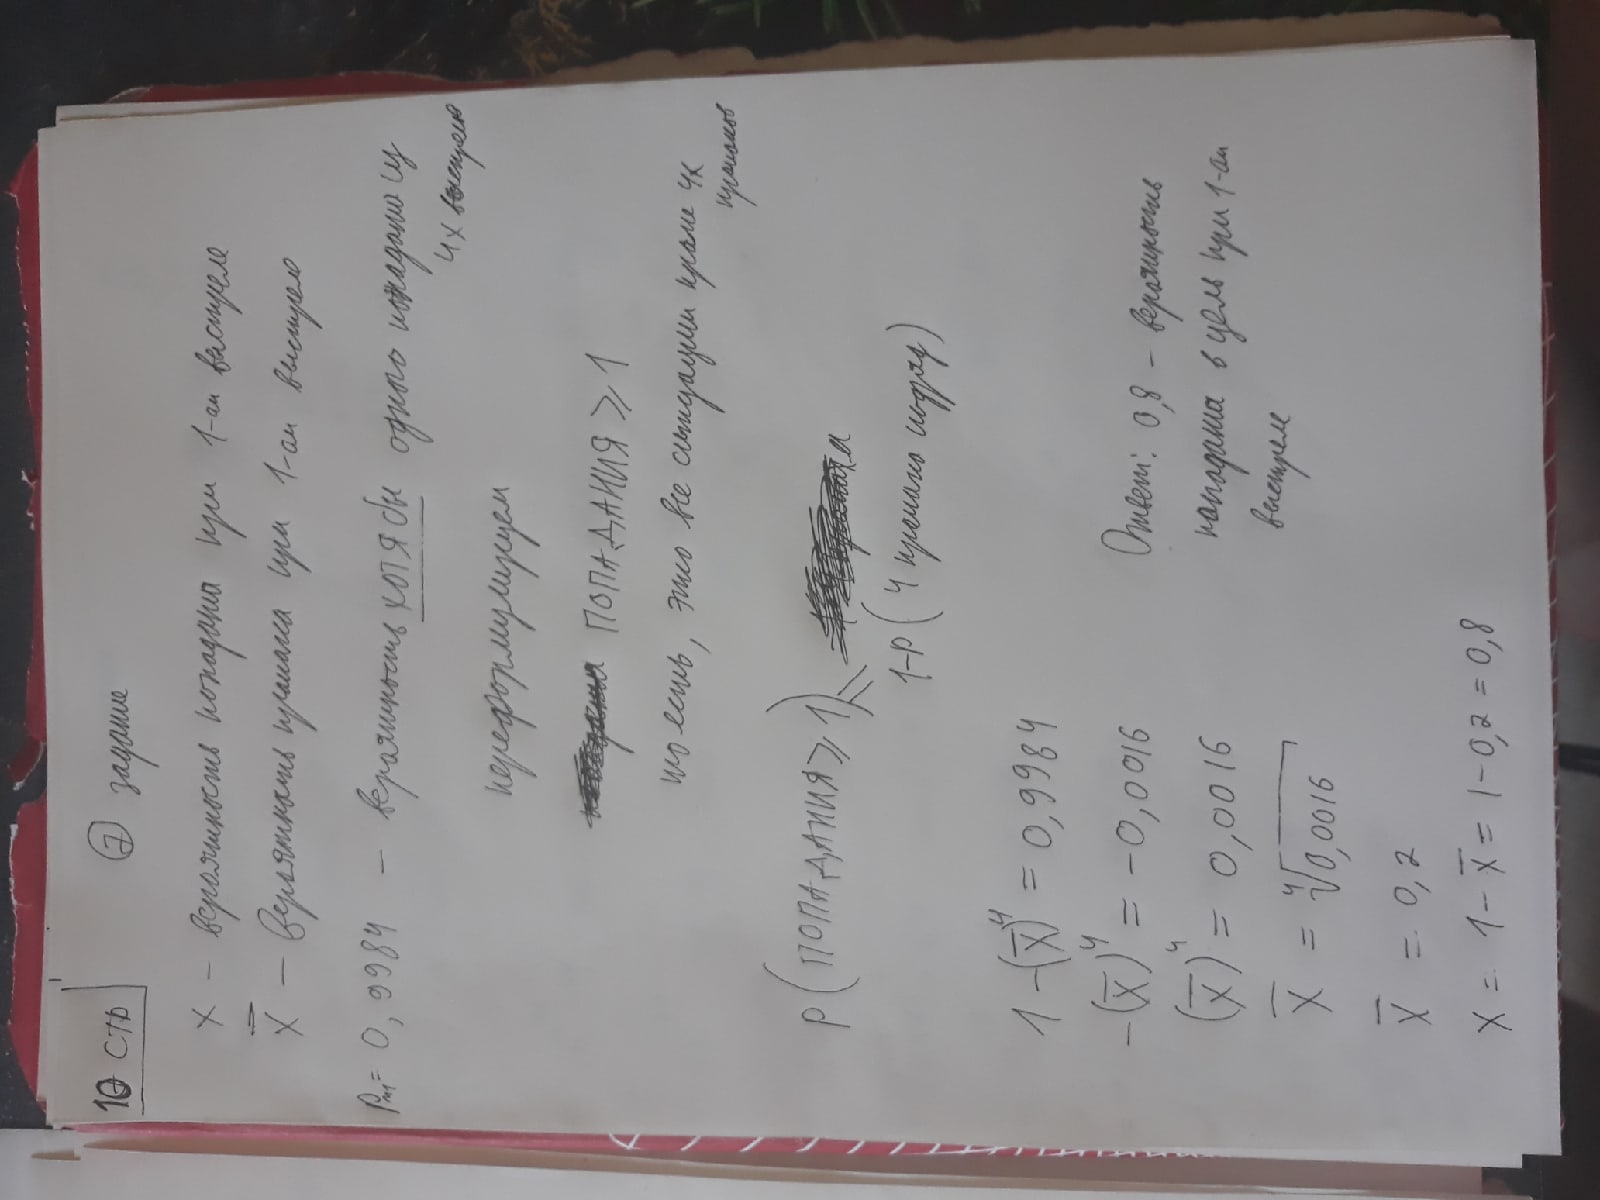 10 стр
⑦ задание
X – вероятность попадания при 1-ом выстреле
X̅ – вероятность промаха при 1-ом выстреле
= 0,9984 – вероятность ХОТЯ бы одного попадания из
4х выстрелов
переформулируем
ПОПАДАНИЯ ⩾ 1
то есть, это все ситуации кроме 4х
промахов
P(ПОПАДАНИЯ ⩾ 1) =
1-P(4 промаха подряд)
1 – (X̅)⁴ = 0,9984
– (X̅)⁴ = – 0,0016
(X̅)⁴ = 0,0016
X̅ = ⁴√0,0016
X̅ = 0,2
X = 1 – X̅ = 1 – 0,2 = 0,8
Ответ: 0,8 – вероятность
попадания в цель при 1-ом
выстреле